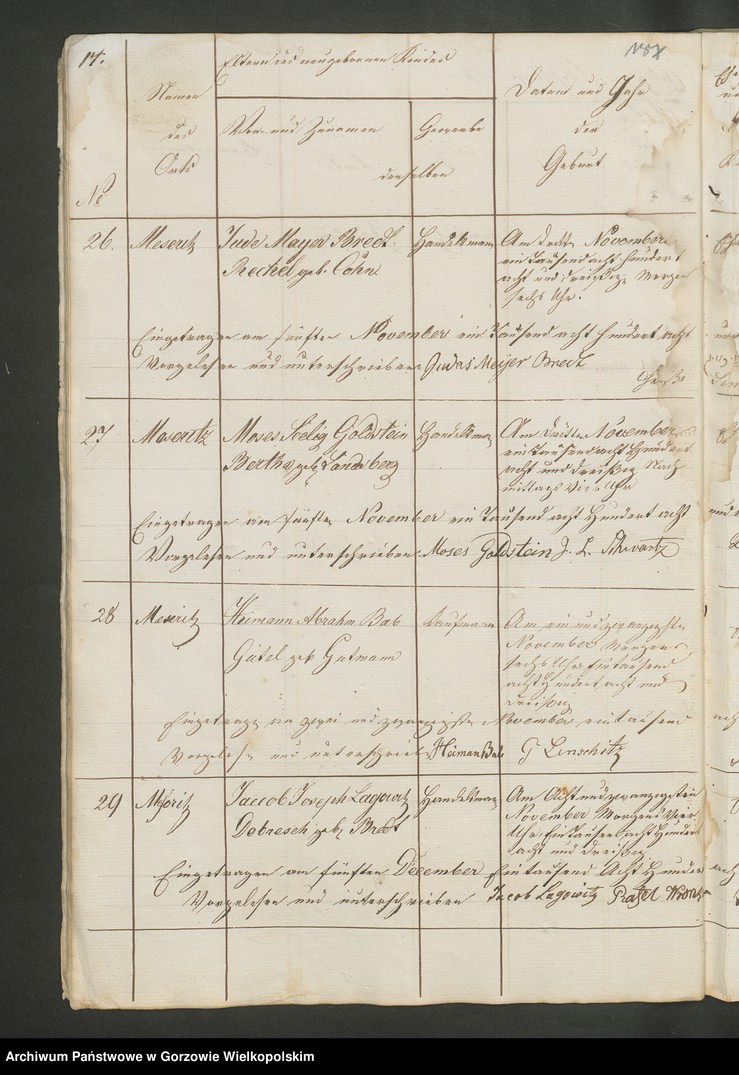 14.
Namen
des
Orts
No
Eltern des neugebornen Kindes
Vor- und Zunamen
Gewerbe
derselben
Datum und Jahr
der
Geburt
26. Meseritz Jude Mayer Bredt Handelsmann Am dritten November
Rechel geb. Cohn ein Tausend acht hundert
acht und dreißig Morgens
sechs Uhr.
Eingetragen am fünften November ein Tausend acht hundert acht
Vorgelesen und unterschrieben Judas Meijer Bredt
27 Meseritz Moses Seelig Goldstein Handelsman Am dritten November
Bertha geb. Landsberg ein tausend acht Hundert
acht und dreißig Nach
mittags vier Uhr
Eingetragen am fünften November ein Tausend acht Hundert acht
Vorgelesen und unterschrieben Moses Goldstein J. L. Schwartz
28 Meseritz Heimann Abraham Bab Kaufmann Am ein und zwanzigsten
Gütel geb Gutmann November Morgens
sechs Uhr Eintausend
acht Hundert acht und
dreißig
Eingetragen am zwei und zwanzigsten November eintausend
Vorgelesen und unterschrieben Heiman Bab
29 Jaccob Joseph Lagowitz Handelsman Am Acht und zwanzigsten
Dobresch geb. Bredt November Morgens Vier
Uhr Ein Tausend acht Hundert
acht und dreißig
Eingetragen am fünften December Eintausend Acht Hundert
Vorgelesen und unterschrieben Jacob Lagowitz
Archiwum Państwowe w Gorzowie Wielkopolskim